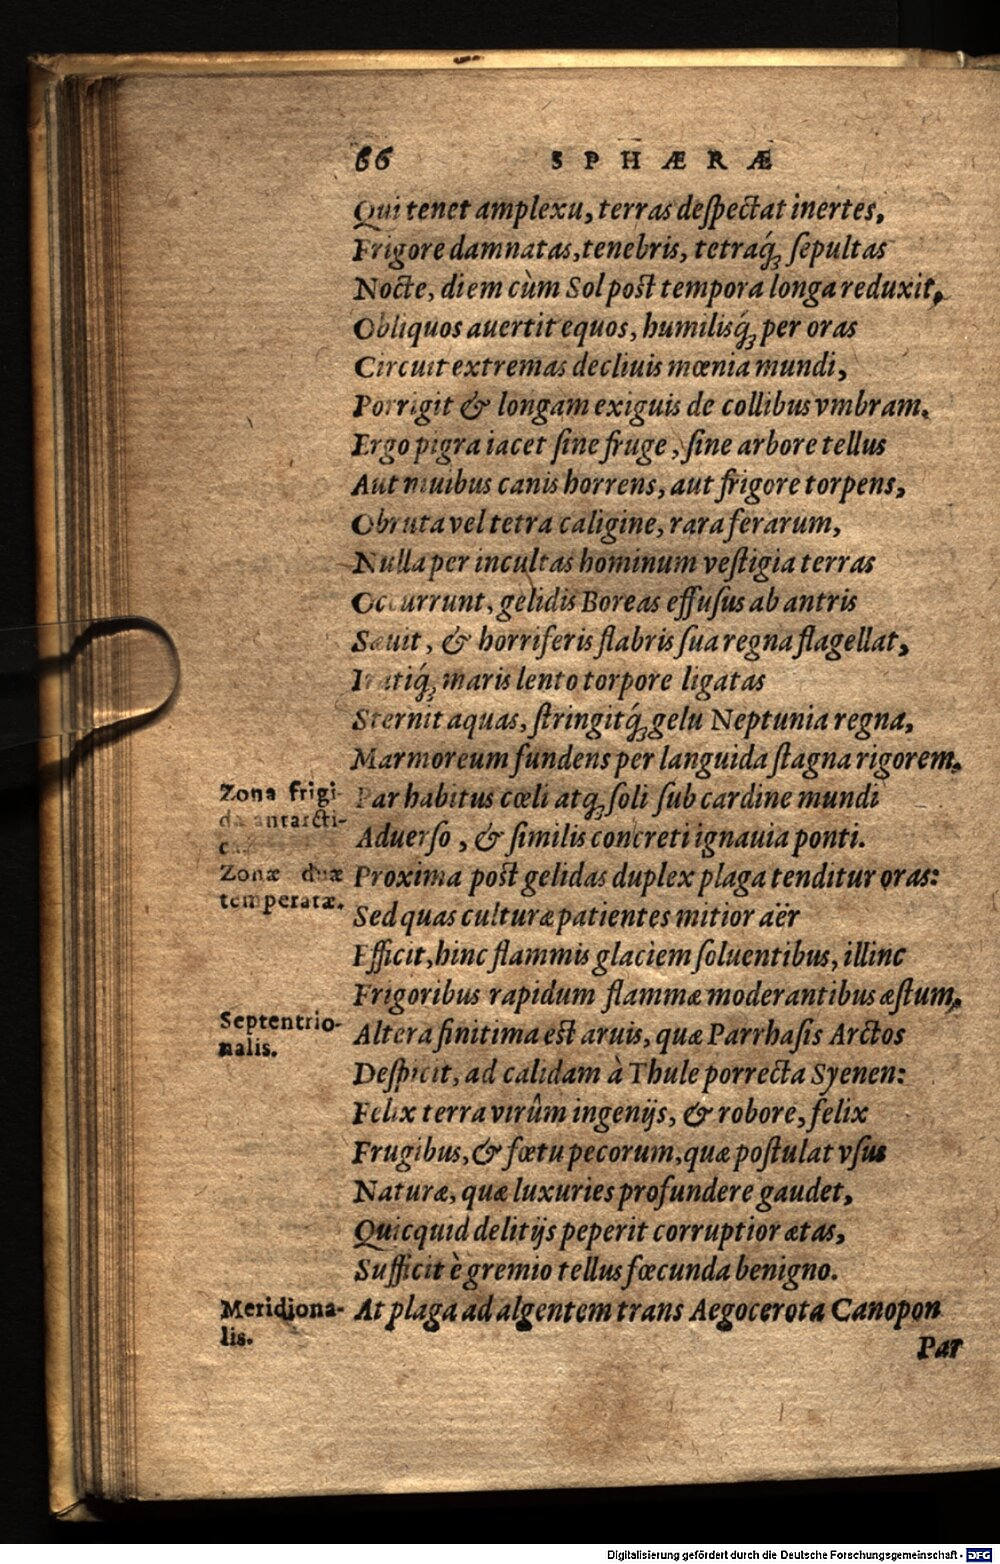 66 SPHÆRÆ
Qui tenet amplexu, terras deſpectat inertes,
Frigore damnatas, tenebris, tetraq́ꝫ ſepultas
Nocte, diem cùm Sol poſt tempora longa reduxit,
Obliquos auertit equos, humilisq́ꝫ per oras
Circuit extremas decliuis mœnia mundi,
Porrigit & longam exiguis de collibus vmbram.
Ergo pigra iacet ſine fruge, ſine arbore tellus
Aut niuibus canis horrens, aut frigore torpens,
Obruta vel tetra caligine, rara ferarum,
Nulla per incultas hominum veſtigia terras
Occurrunt, gelidis Boreas effuſus ab antris
Sæuit, & horriferis flabris ſua regna flagellat,
Iratiq́ꝫ maris lento torpore ligatas
Sternit aquas, ſtringitq́ꝫ gelu Neptunia regna,
Marmoreum fundens per languida ſtagna rigorem.
Zona frigi-
da antarcti-
ca.
Par habitus cœli atqꝫ ſoli ſub cardine mundi
Aduerſo, & ſimilis concreti ignauia ponti.
Zonæ duæ
temperatæ.
Proxima poſt gelidas duplex plaga tenditur oras:
Sed quas culturæ patientes mitior aër
Efficit, hinc flammis glaciem ſoluentibus, illinc
Frigoribus rapidum flammæ moderantibus æſtum,
Septentrio-
nalis.
Altera finitima eſt aruis, quæ Parrhaſis Arctos
Deſpicit, ad calidam à Thule porrecta Syenen:
Felix terra virûm ingenijs, & robore, felix
Frugibus, & fœtu pecorum, quæ poſtulat vſus
Naturæ, quæ luxuries profundere gaudet,
Quicquid delitijs peperit corruptior ætas,
Sufficit è gremio tellus fœcunda benigno.
Meridiona-
lis.
At plaga ad algentem trans Aegocerota Canopon
Par
Digitalisierung gefördert durch die Deutsche Forschungsgemeinschaft - DFG